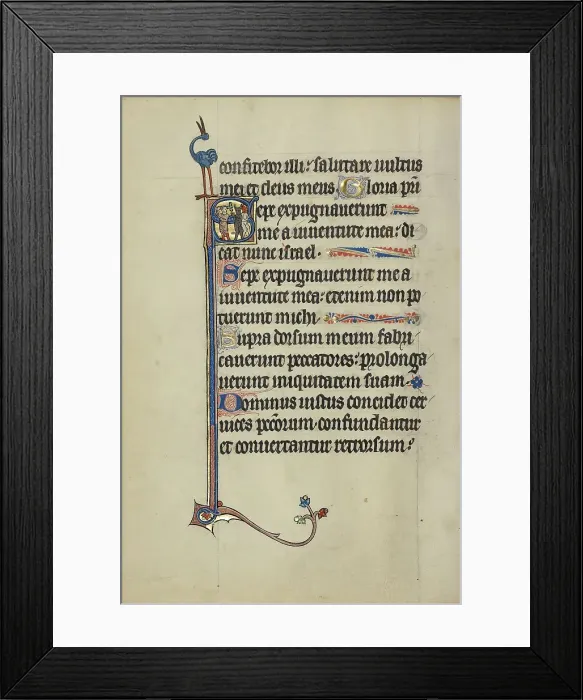 confitebor illi: salutare uultus
mei et deus meus. Gloria pri
Sepe expugnauerunt
me a iuuentute mea: di
cat nunc israel.
Sepe expugnauerunt me a
iuuentute mea: etenim non po
tuerunt michi.
Supra dorsum meum fabri
cauerunt peccatores: prolonga
uerunt iniquitatem suam.
Dominus iustus concidet cer
uices pccōrum: confundantur
et conuertantur retrorsum: